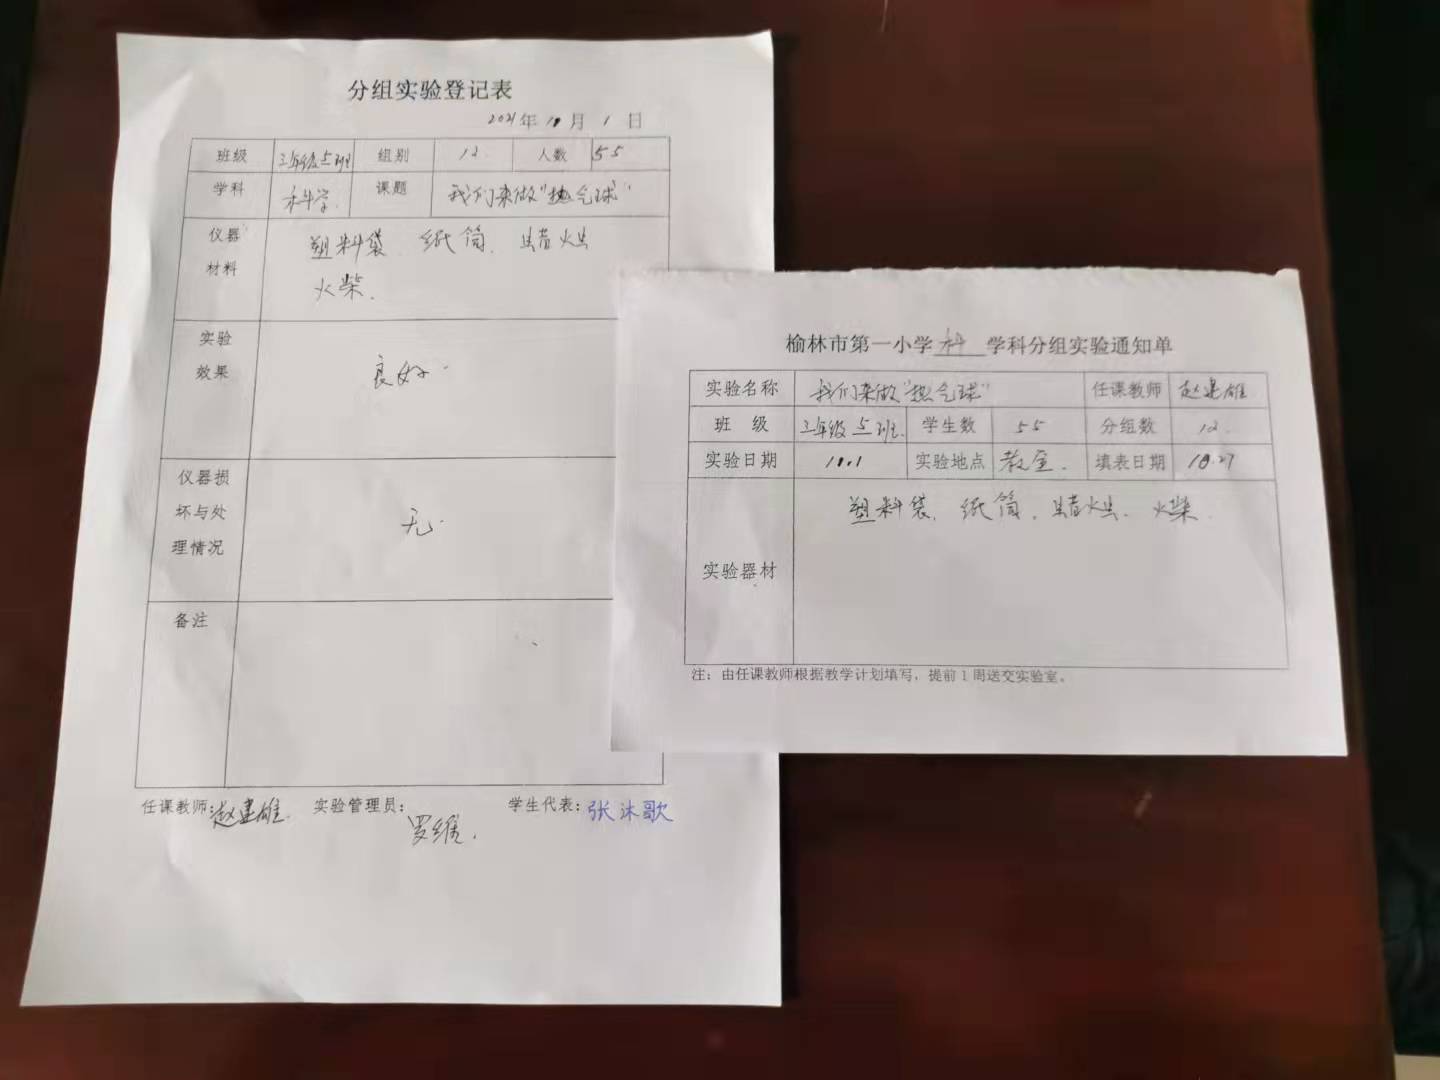 分组实验登记表
2021年 10 月 1 日
班级 三年级5班 组别 12 人数 55
学科 科学 课题 我们来做"热气球"
仪器材料 塑料袋、纸筒、蜡烛
火柴.
实验效果 良好.
仪器损坏与处理情况 无.
备注
任课教师: 赵建雄 实验管理员: 罗维. 学生代表: 张沐歌
榆林市第一小学 科 学科分组实验通知单
实验名称 我们来做"热气球" 任课教师 赵建雄
班 级 三年级5班. 学生数 55 分组数 12.
实验日期 实验地点 教室. 填表日期 10.27
实验器材 塑料袋、纸筒、蜡烛、火柴.
注：由任课教师根据教学计划填写，提前1周送交实验室。